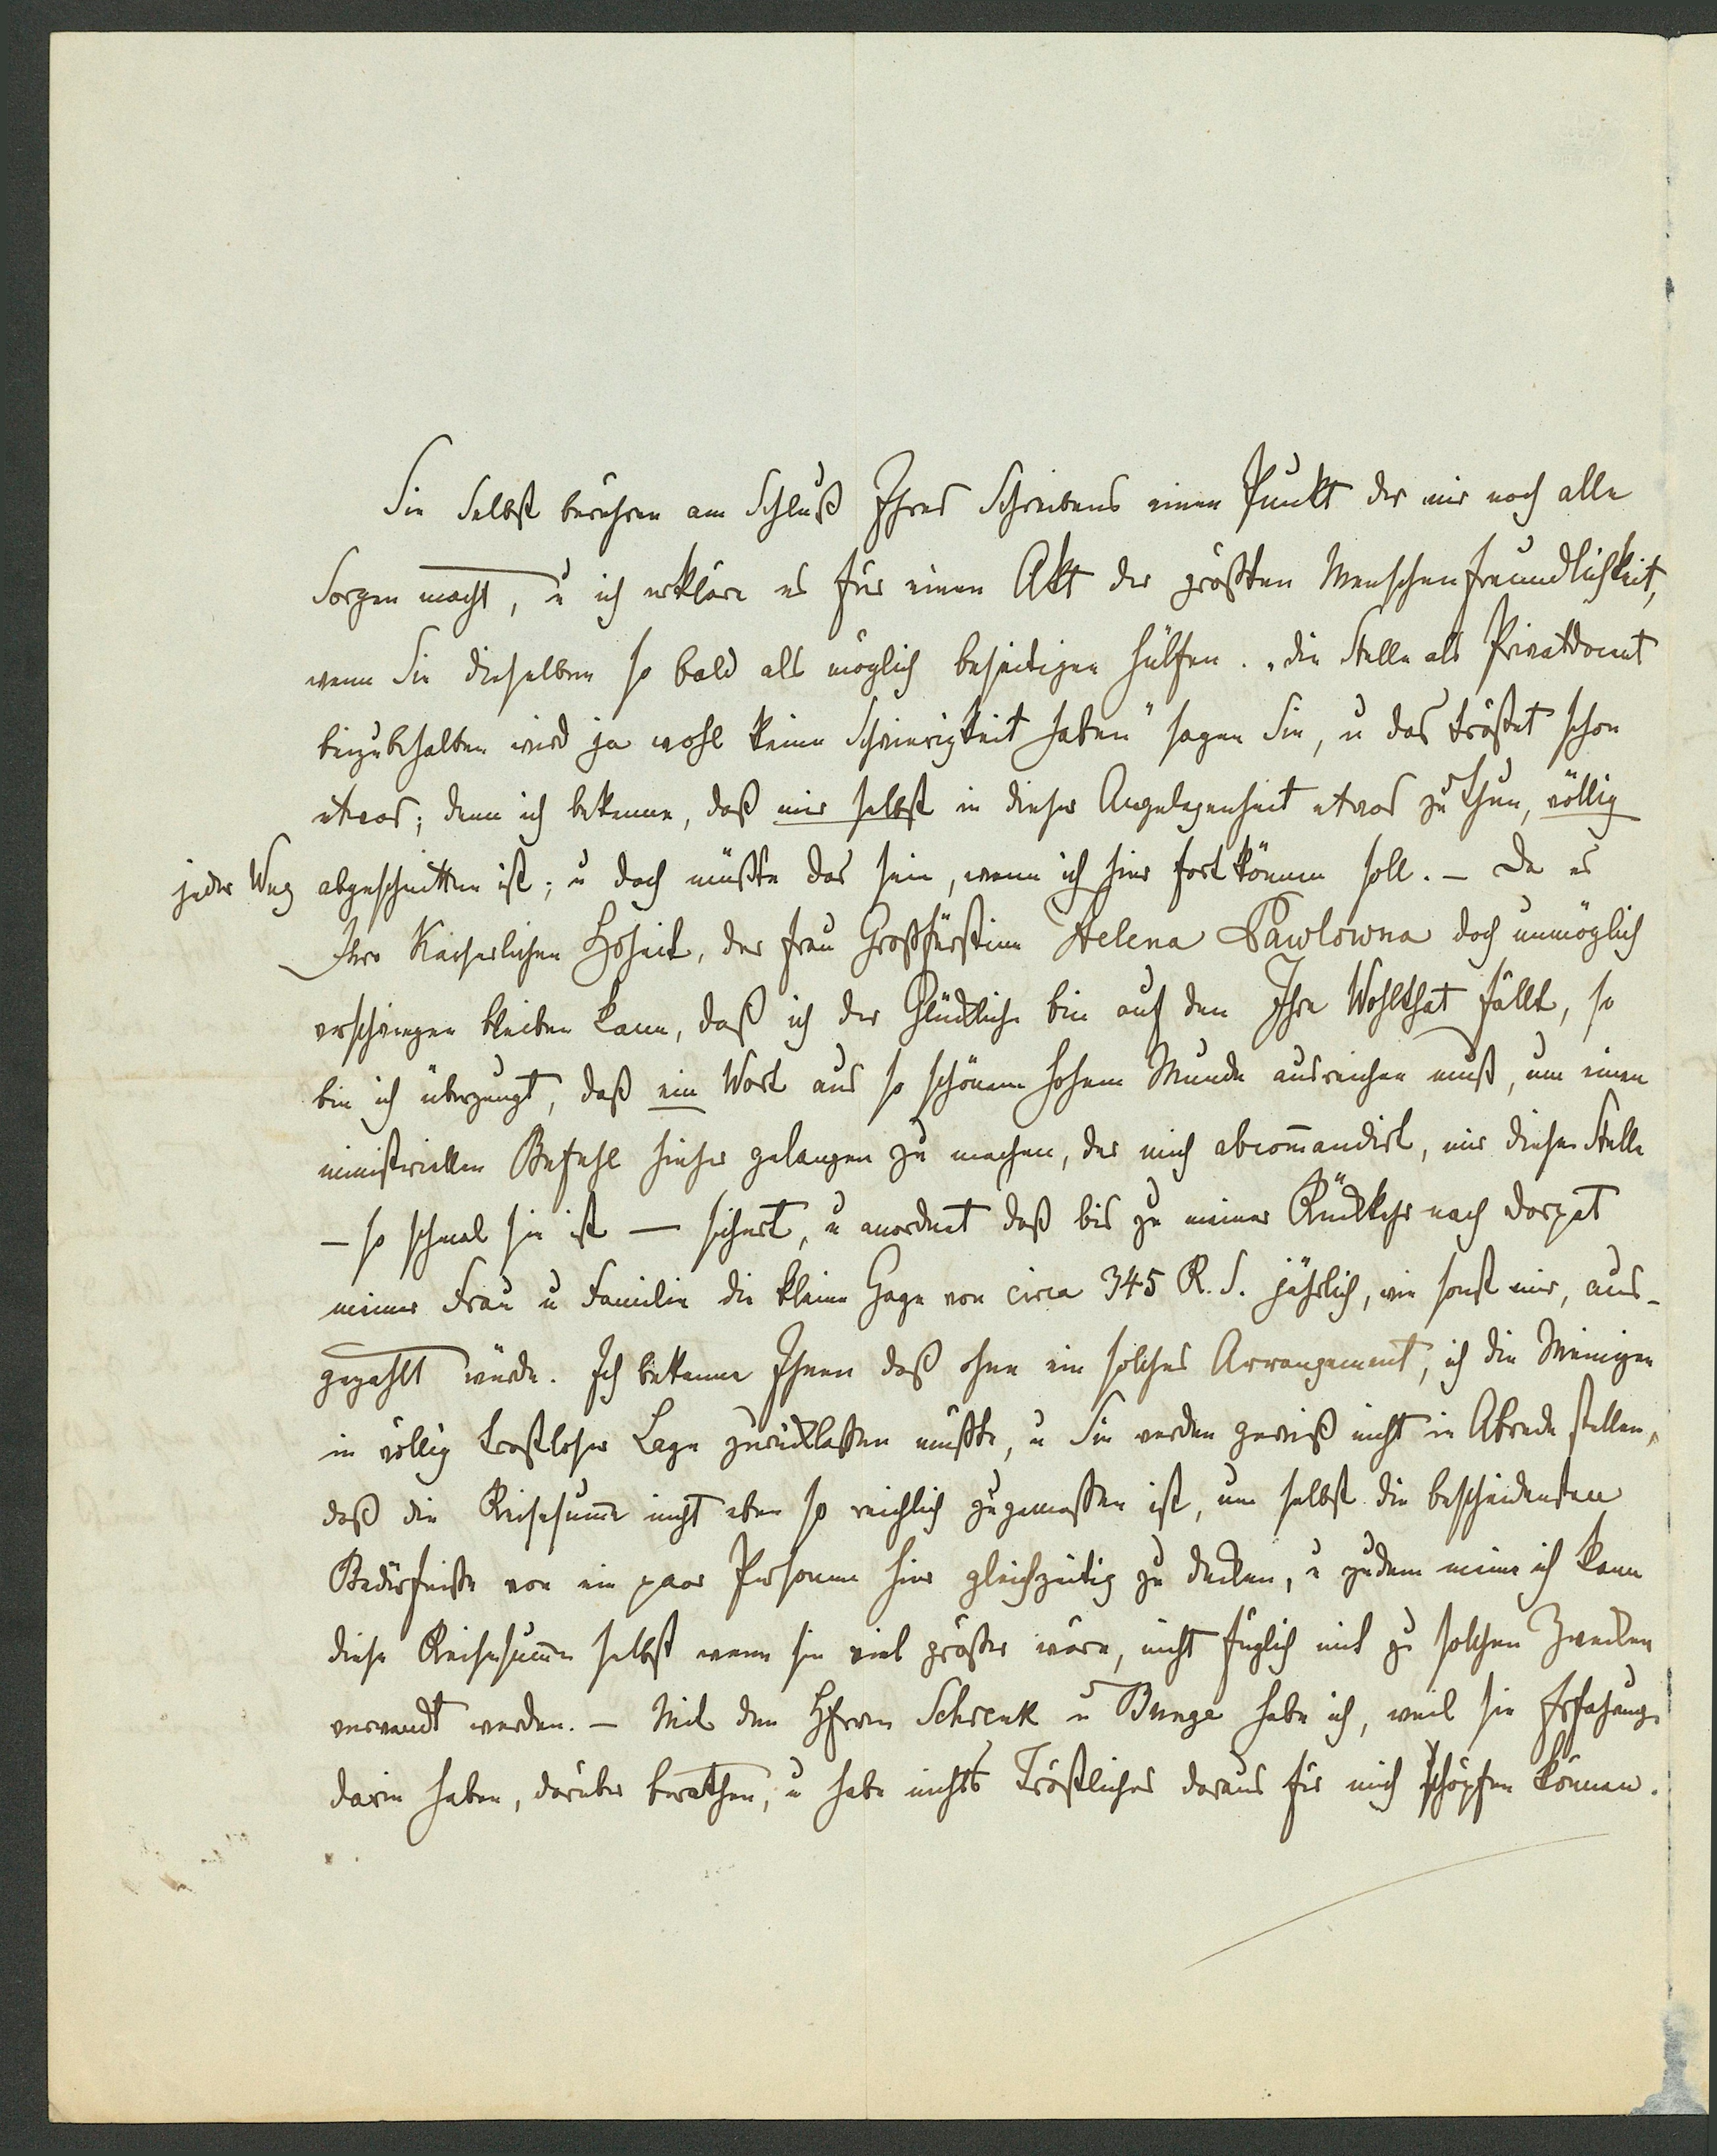 Sie Selbst berühren am Schluß Ihres Schreibens einen Punkt der mir noch alle
Sorgen macht, u ich erkläre es für einen Akt der größten Menschenfreundlichkeit,
wenn Sie dieselben so bald als möglich beseitigen hülfen. „die Stelle als Privatdocent
beizubehalten wird ja wohl keine Schwierigkeit haben" sagen Sie, u das tröstet schon
etwas; denn ich bekenne, daß mir selbst in dieser Angelegenheit etwas zu thun, völlig
jeder Weg abgeschnitten ist; u doch müßte das sein, wenn ich hier fortkönnen soll. – Da es
Ihro Kaiserlichen Hoheit, der Frau Großfürstinn Helena Pawlowna doch unmöglich
verschwiegen bleiben kann, daß ich der Glückliche bin auf den Ihre Wohlthat fällt, so
bin ich überzeugt, daß ein Wort aus so schönem hohem Munde ausreichen muß, um einen
ministeriellen Befehl hieher gelangen zu machen, der mich abcom̅andirt, mir diese Stelle
– so schmal sie ist – sichert, u anordnet daß bis zu meiner Rückkehr nach Dorpat
meiner Frau u Familie die kleine Gage von circa 345 R. S. jährlich, wie sonst mir, aus-
gezahlt würde. Ich bekenne Ihnen daß ohne ein solches Arrangement, ich die Meinigen
in völlig trostloser Lage zurücklassen müßte, u Sie werden gewiß nicht in Abrede stellen,
daß die Reisesum̅e nicht eben so reichlich zugemessen ist, um selbst die bescheidensten
Bedürfniße von ein paar Personen hier gleichzeitig zu decken, u zudem meine ich kann
diese Reisesum̅e selbst wenn sie viel größer wäre, nicht füglich mit zu solchen Zwecken
verwandt werden. – Mit den Herren Schrenk u Bunge habe ich, weil sie Erfahrung
darin haben, darüber berathen, u habe nichts Tröstliches daraus für mich schöpfen können.